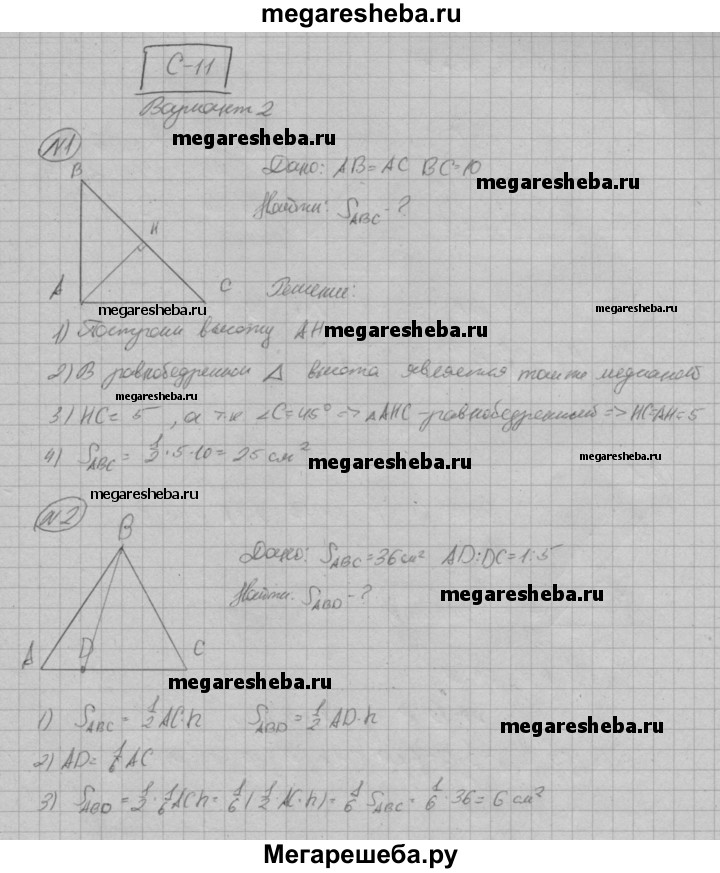 megaresheba.ru
С-11
Вариант 2
megaresheba.ru
№1
Дано: AB=AC BC=10
megaresheba.ru
Найти: S_ABC - ?
B
H
A
C
Решение:
megaresheba.ru
megaresheba.ru
1) Построим высоту AH
megaresheba.ru
2) В равнобедренном Δ высота является также медианой
megaresheba.ru
3) HC = 5, а т.к ∠C=45° => ΔAHC - равнобедренный => HC=AH=5
4) S_ABC = 1/2 · 5 · 10 = 25 см²
megaresheba.ru
megaresheba.ru
megaresheba.ru
№2
B
Дано: S_ABC = 36 см² AD:DC = 1:5
Найти: S_ABD - ?
megaresheba.ru
A
D
C
megaresheba.ru
1) S_ABC = 1/2 AC·h S_ABD = 1/2 AD·h
megaresheba.ru
2) AD = 1/6 AC
3) S_ABD = 1/2 · 1/6 AC h = 1/6 (1/2 · AC · h) = 1/6 S_ABC = 1/6 · 36 = 6 см²
Мегарешеба.ру